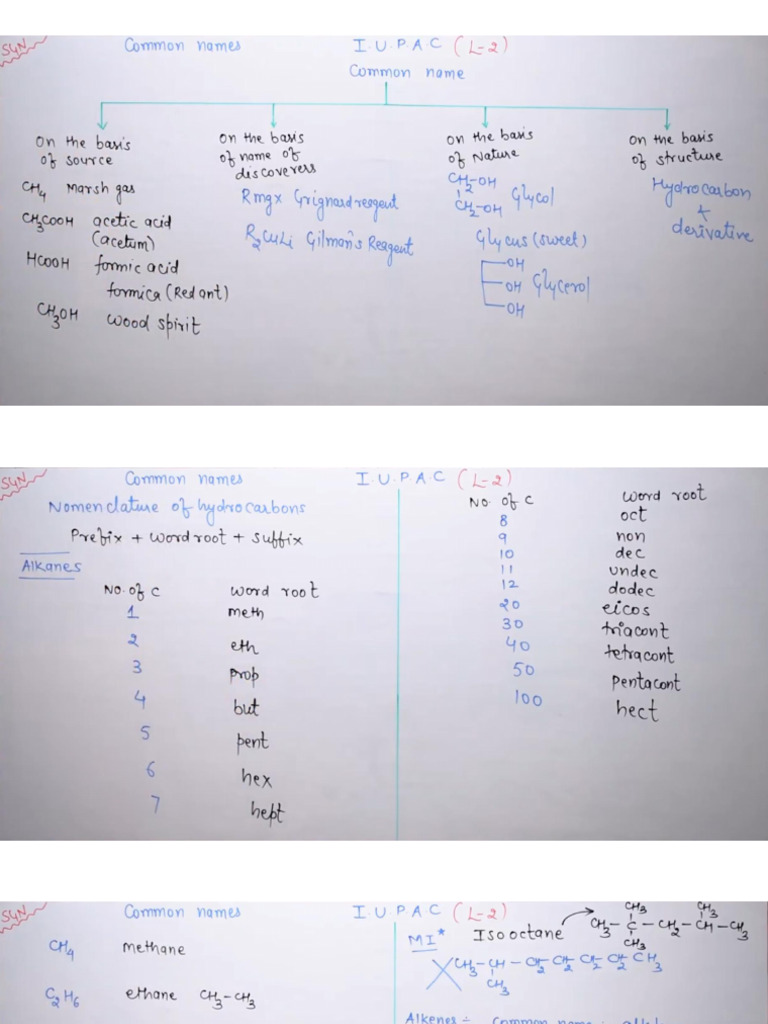 SYN
Common names I.U.P.A.C (L-2)
Common name
On the basis
of source
CH4 Marsh gas
CH3COOH acetic acid
(acetum)
HCOOH formic acid
formica (Red ant)
CH3OH wood spirit
On the basis
of name of
discoverers
Rmgx Grignard reagent
R2CuLi Gilman's Reagent
On the basis
of Nature
CH2-OH
CH2-OH Glycol
Glycus (sweet)
OH
OH Glycerol
OH
On the basis
of structure
Hydrocarbon
&
derivative
SYN
Common names I.U.P.A.C (L-2)
Nomenclature of hydrocarbons
Prefix + word root + suffix
Alkanes
No. of C word root
1 meth
2 eth
3 prop
4 but
5 pent
6 hex
7 hept
No. of C word root
8 oct
9 non
10 dec
11 undec
12 dodec
20 eicos
30 triacont
40 tetracont
50 pentacont
100 hect
SYN
Common names I.U.P.A.C (L-2)
CH4 methane
C2H6 ethane CH3-CH3
MI* Isooctane
CH3 CH3
CH3-C-CH2-CH-CH3
CH3
CH3-CH-CH2-CH2-CH2-CH2-CH3
CH3
Alkenes :- Common name :